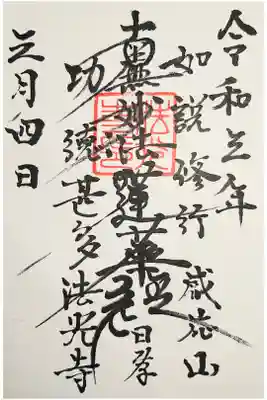 令和五年
如説修行
威光山
南無妙法蓮華経
日孝
功徳甚多
法光寺
三月四日